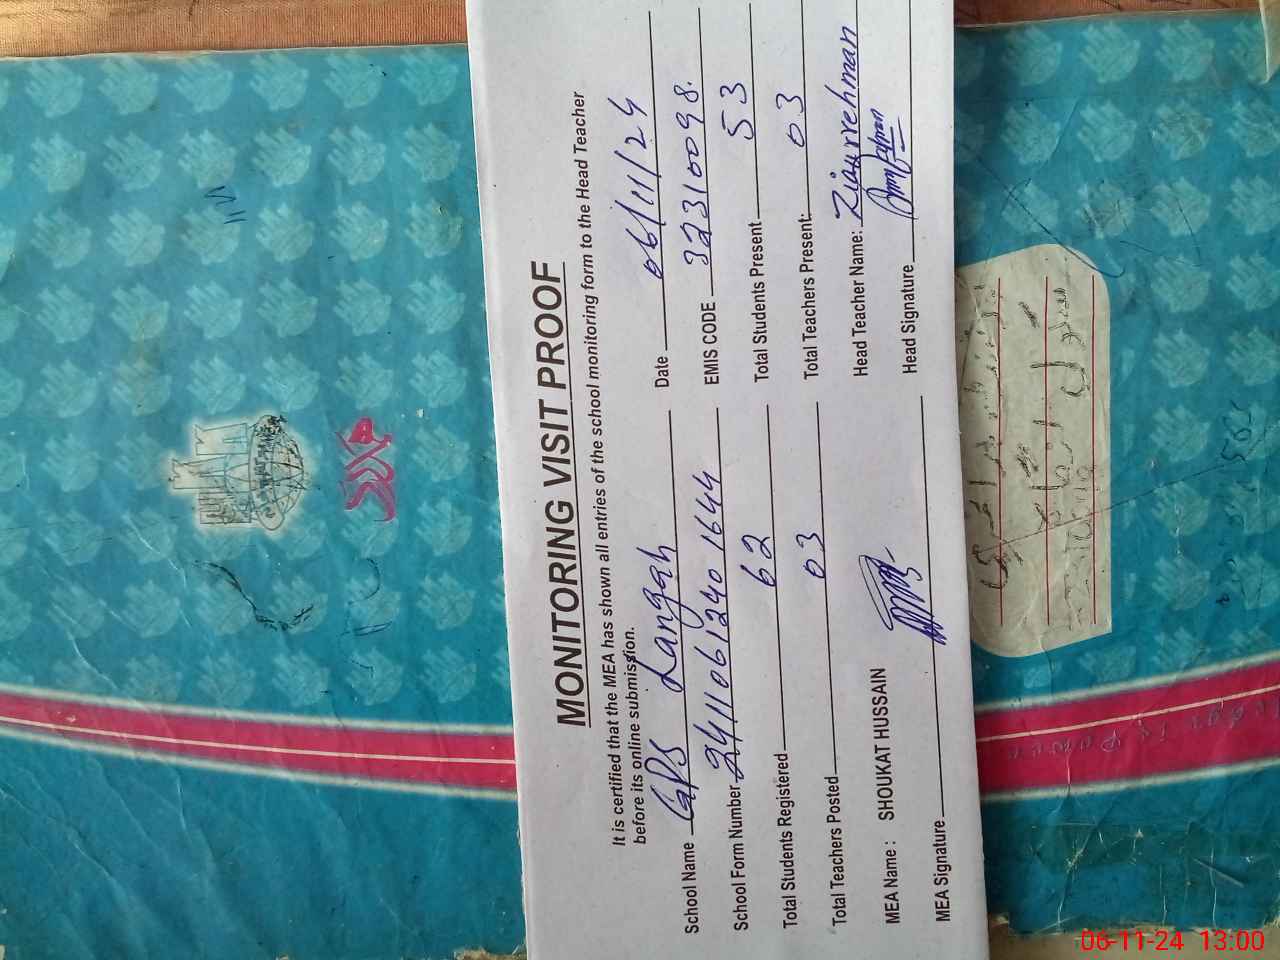 MONITORING VISIT PROOF
It is certified that the MEA has shown all entries of the school monitoring form to the Head Teacher
before its online submission.
School Name GPS Langah Date 06/11/24
School Form Number 2411061240 1644 EMIS CODE 32310098.
Total Students Registered 62 Total Students Present 53
Total Teachers Posted 03 Total Teachers Present: 03
MEA Name : SHOUKAT HUSSAIN Head Teacher Name: Ziaurrehman
MEA Signature Head Signature
06-11-24 13:00